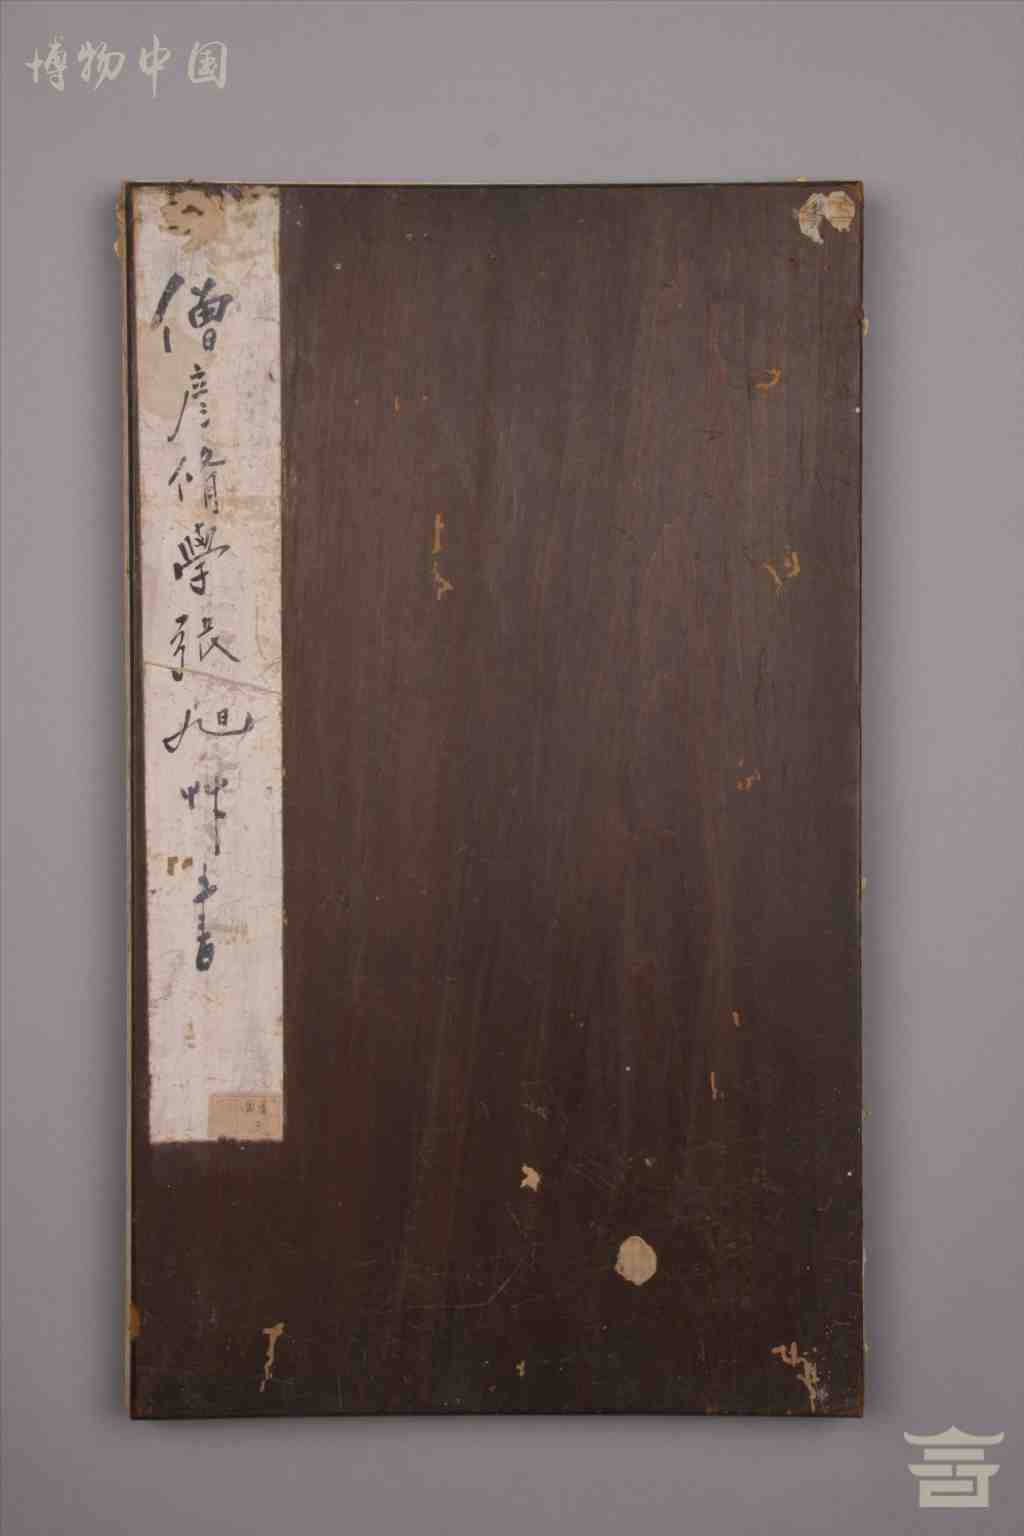 博物中国
僧彦脩學張旭艸書